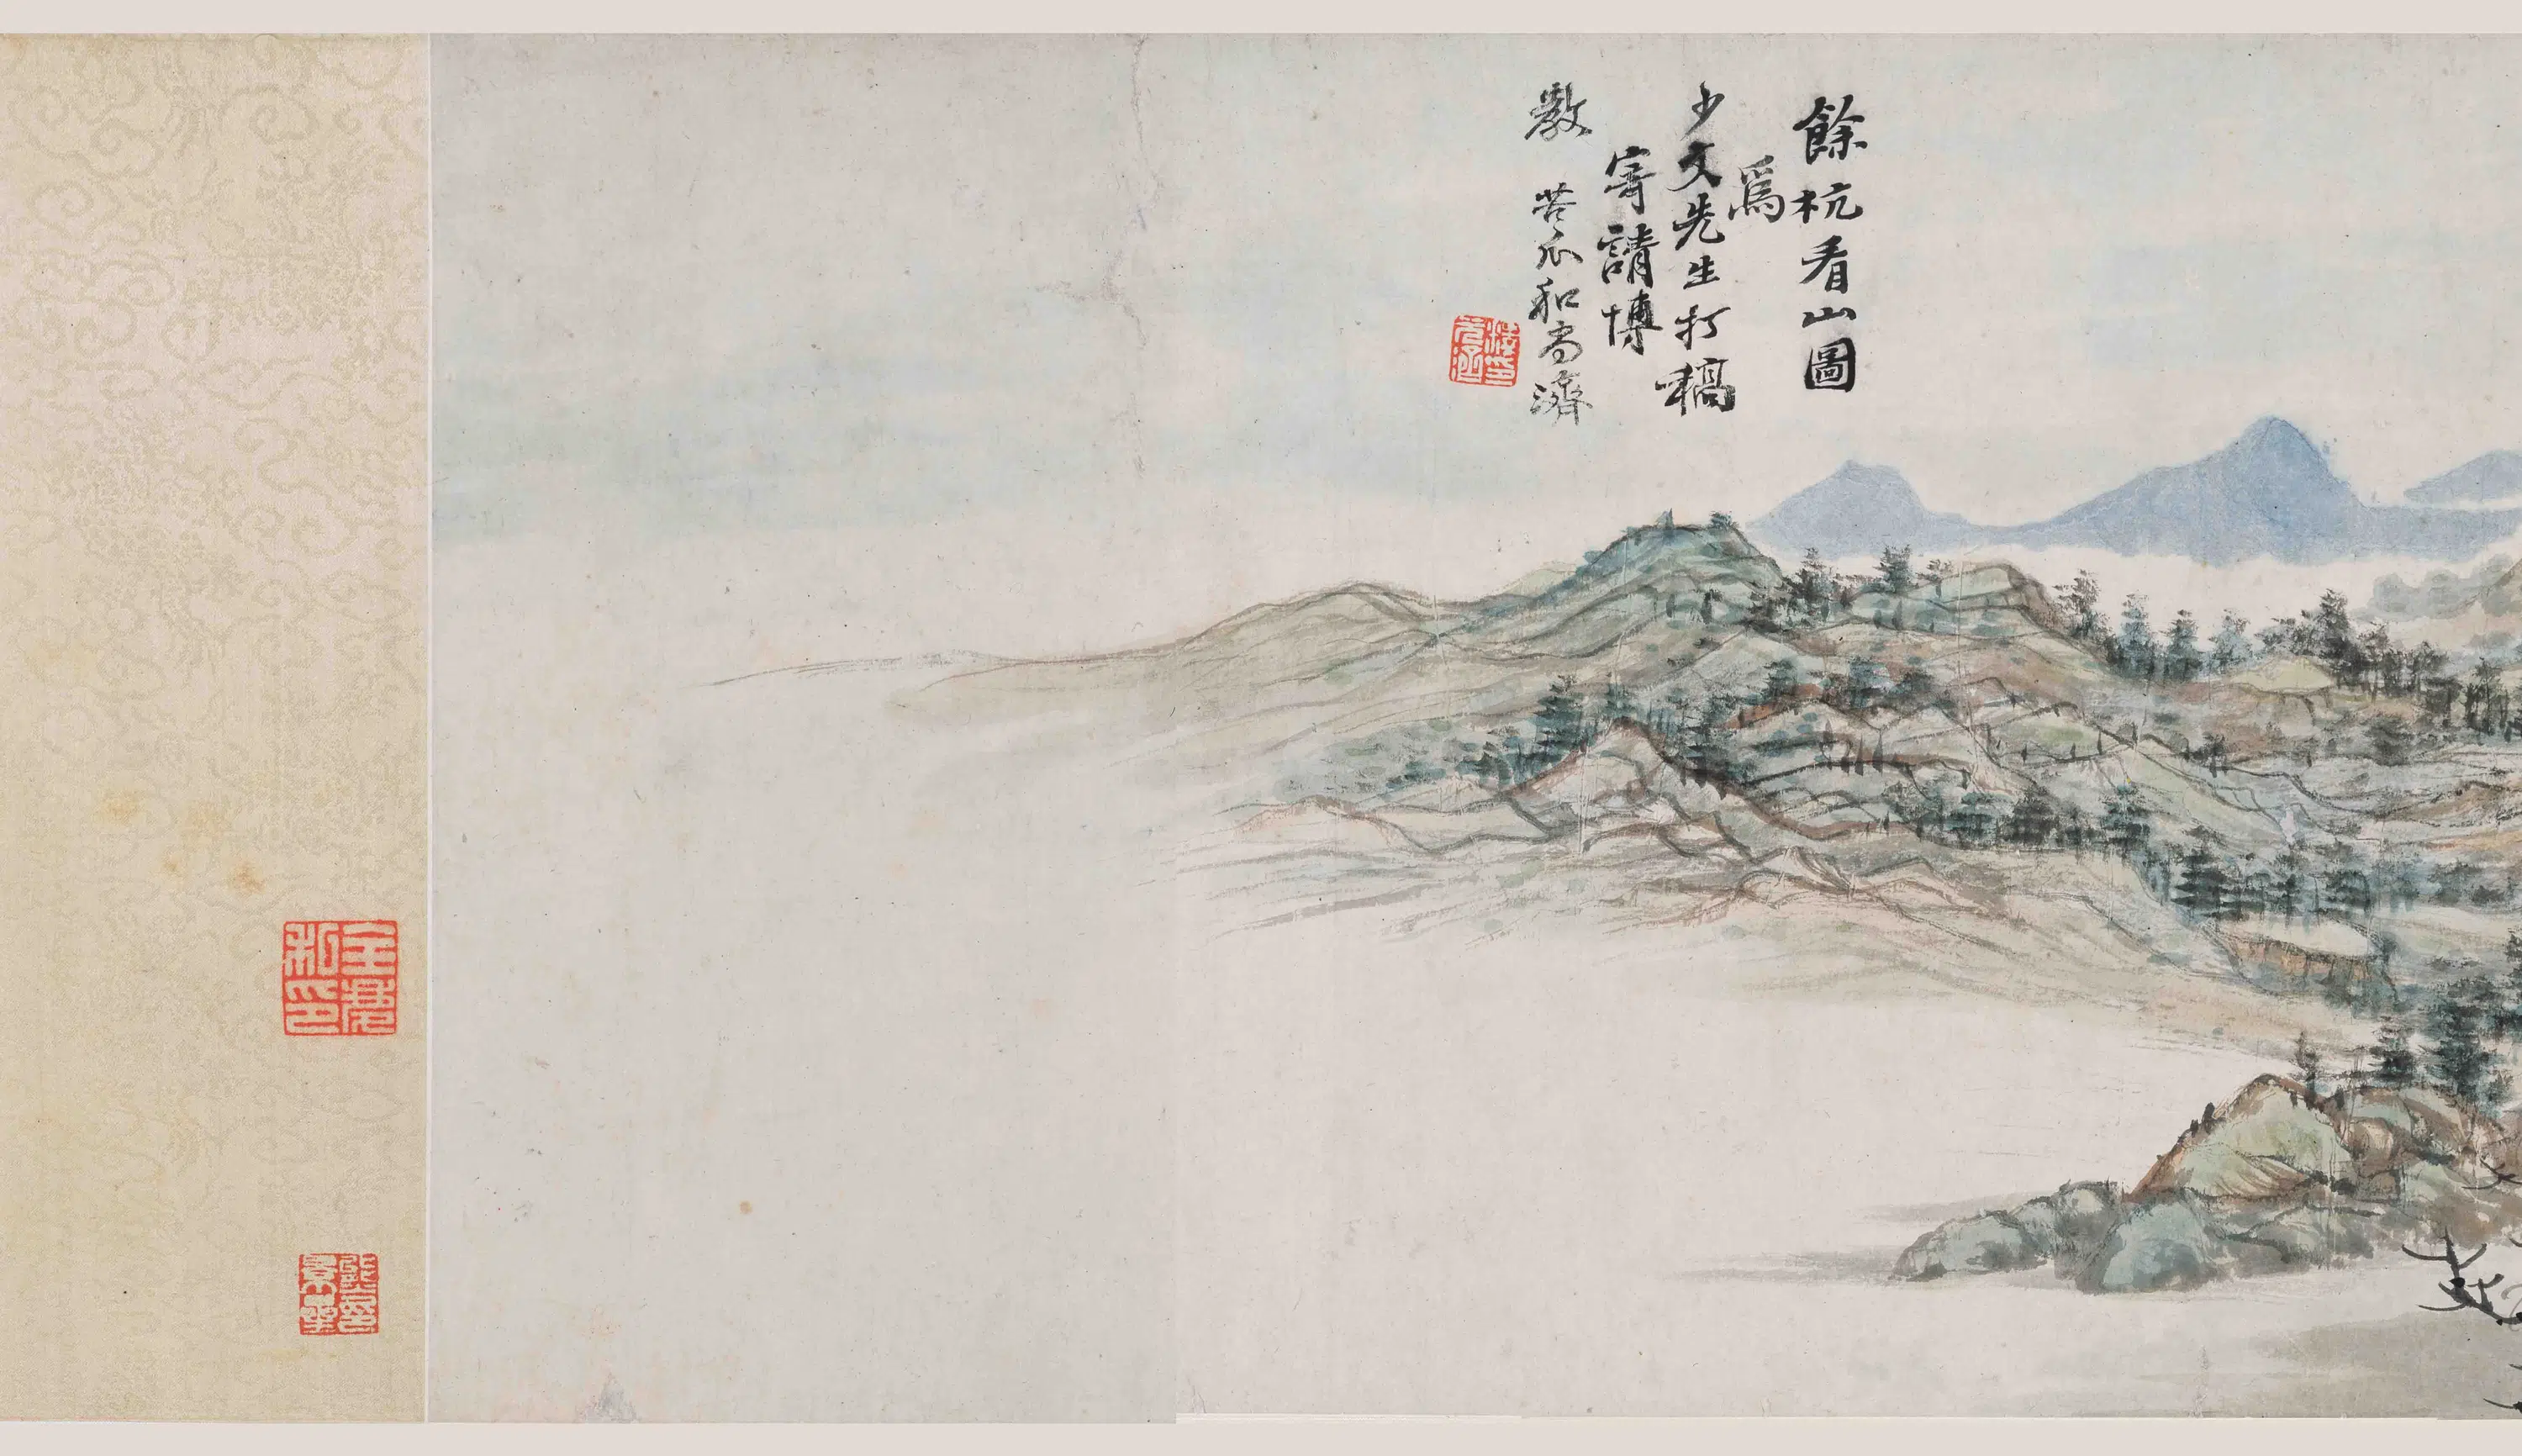 餘杭看山圖
爲
少文先生打稿
寄請博
教 苦瓜和尚濟